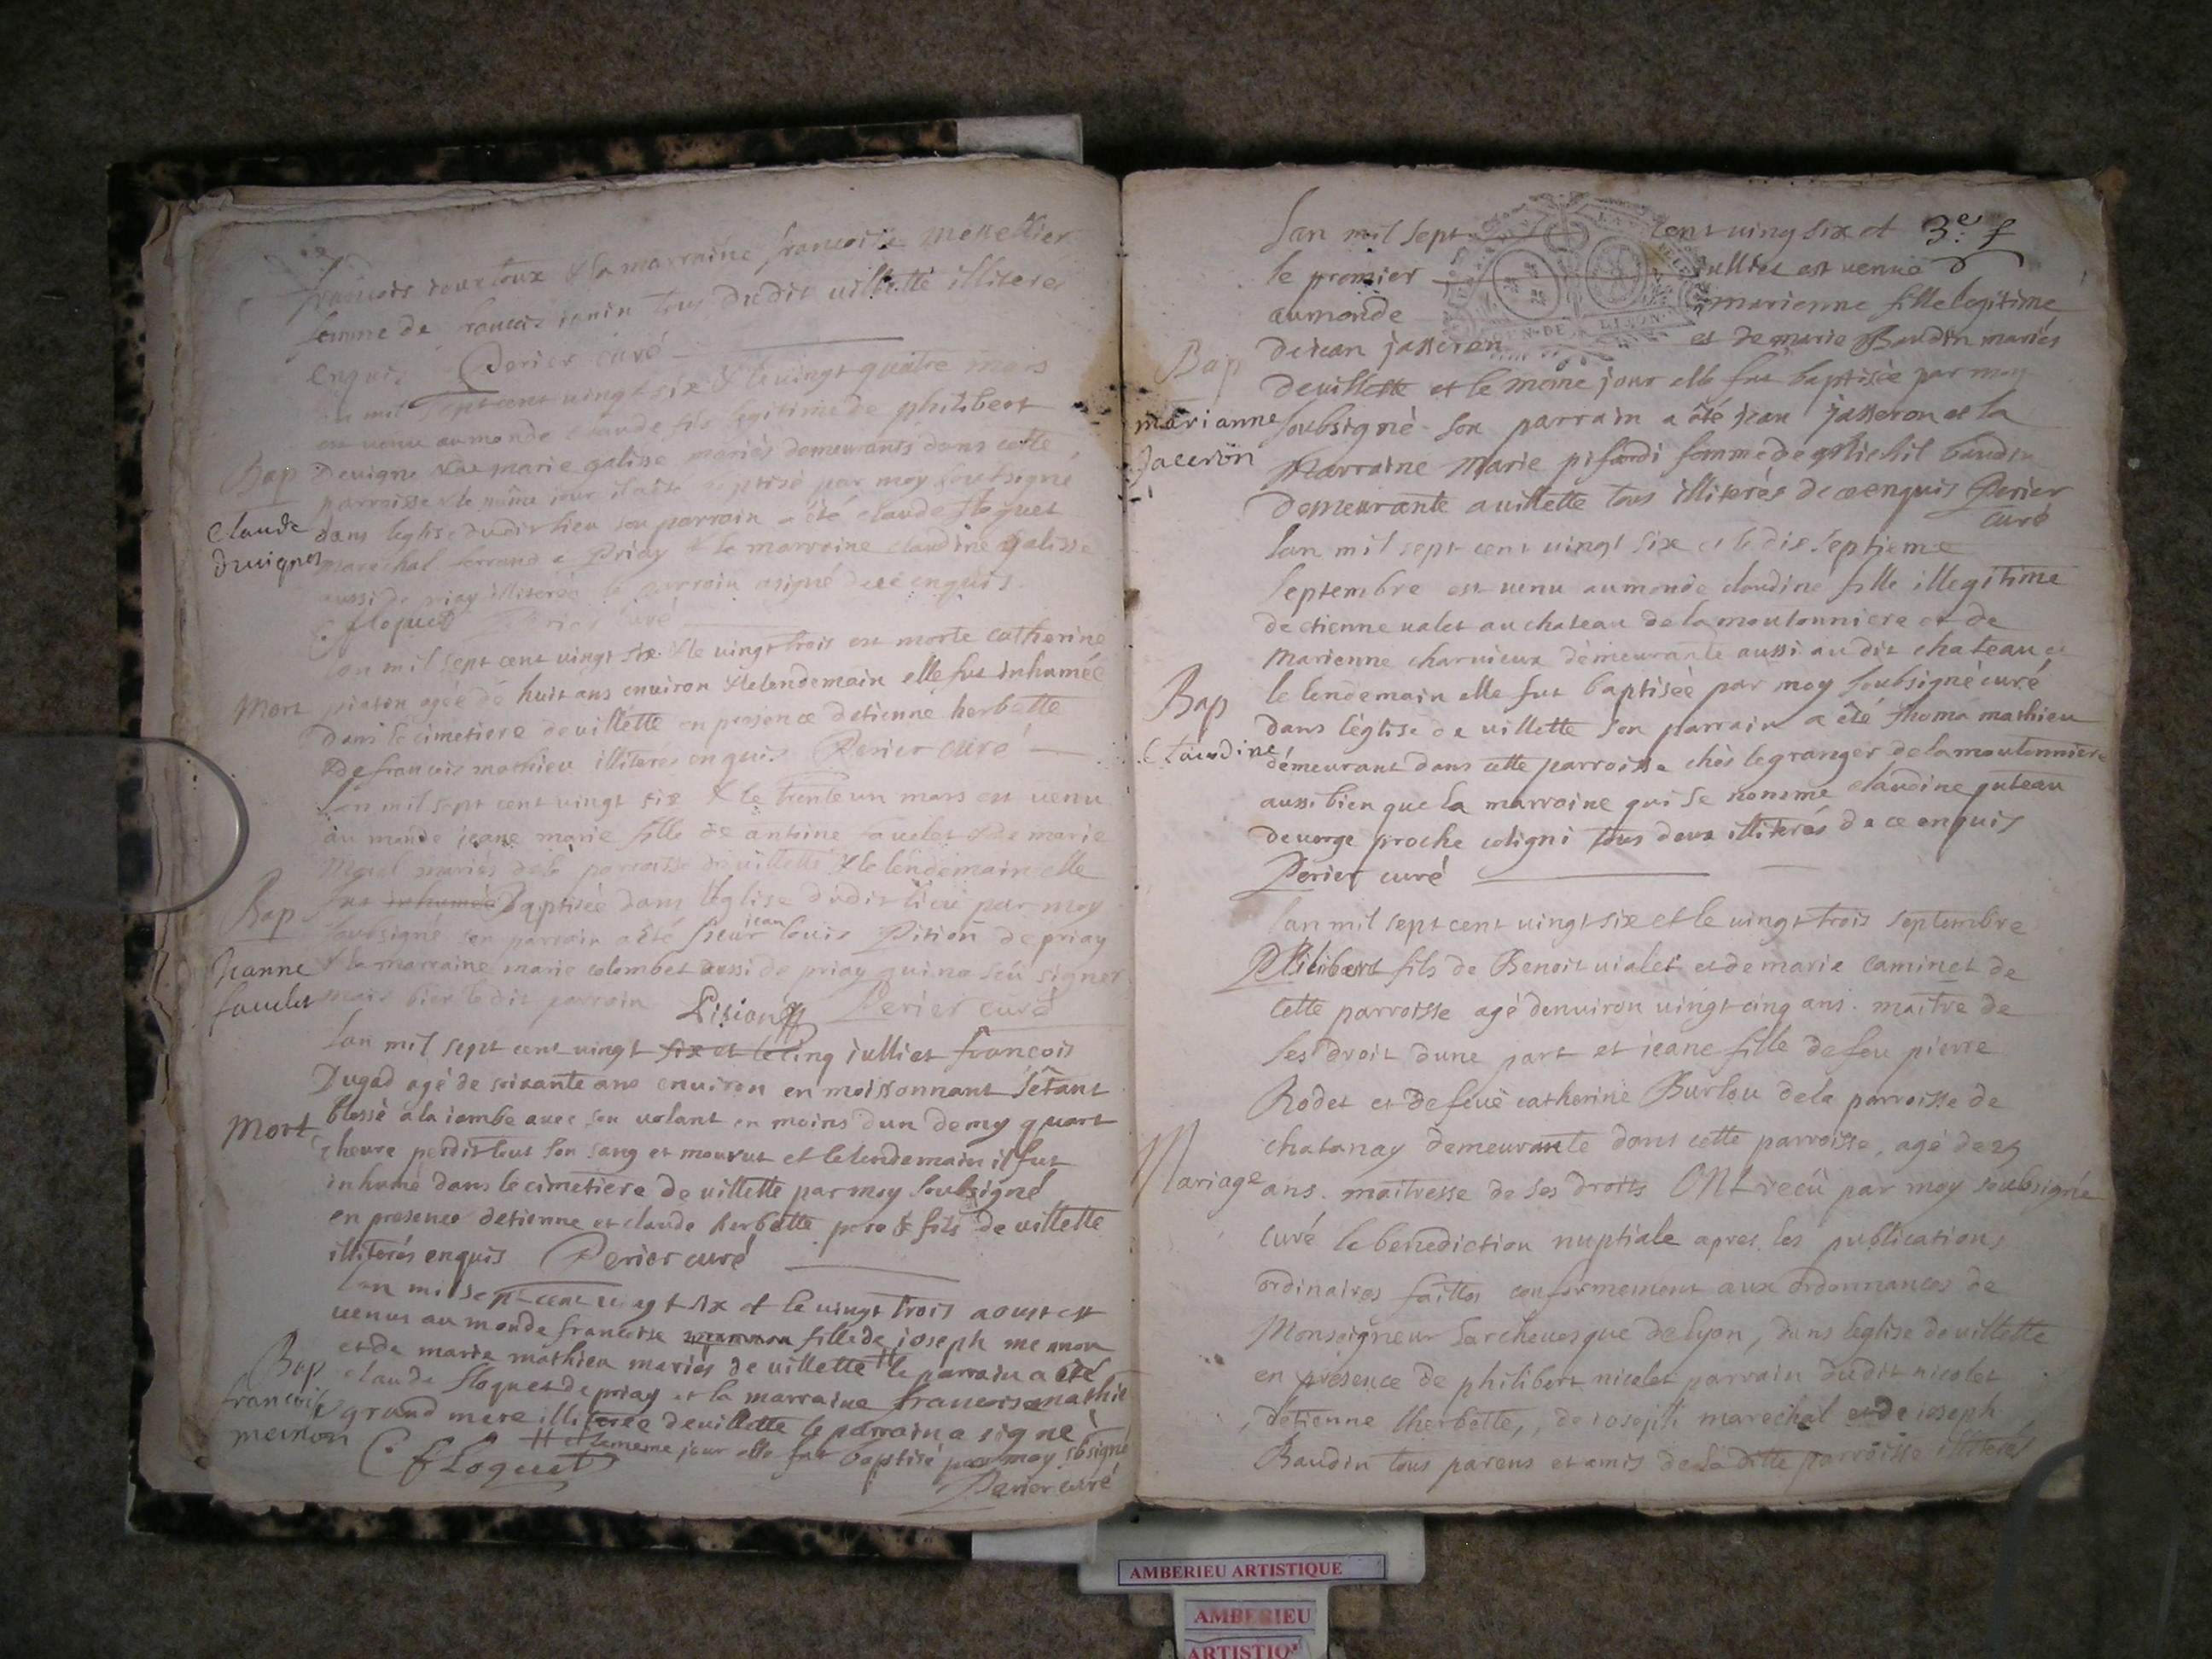 françois iourloux & la marraine françoise messellier
femme de françois ianin tous dudit villette illiteres
enquis Perier curé
l'an mil sept cent vingt six & le vingt quatre mars
est venu au monde claude fils legitime de philibert
Bap devigne & de marie galisse mariés demeurants dans cette
parroisse & le même jour il a été baptisé par moy soubsigné
claude dans leglise dudit lieu son parrain a été claude floquet
duvignes marechal ferrand a Priay & la marraine claudine galisse
aussi de priay illiterée le parrain a signé de ce enquis
C floquet Perier curé
l'an mil sept cent vingt six & le vingt trois est morte catherine
Mort pioton agée de huit ans environ & le lendemain elle fut inhumée
dans le cimetiere de villette en presence detienne herbette
& de francois mathieu illiterés enquis Perier curé
l'an mil sept cent vingt six & le trente un mars est venu
au monde jeane marie fille de antoine fauclet & de marie
morel mariés de la parroisse de villette & le lendemain elle
Bap fut inhumée Baptisée dans l'église dudit lieu par moy
soubsigné son parrain a été sieur jean louis Pition de priay
Jeanne & la marraine marie colombet aussi de priay qui na seu signer
fauclet mais bien le dit parrain Pision Perier curé
Lan mil sept cent vingt six et le cinq iulliet francois
Dugad agé de soixante ans environ en moissonnant s'étant
Mort blessé a la iambe avec son volant en moins dun demy quart
d'heure perdit tout son sang et mourut et le lendemain il fut
inhumé dans le cimetiere de villette par moy soubsigné
en presence detienne et claude herbette pere & fils de villette
illiterés enquis Perier curé
lan mil sept cent vingt six et le vingt trois aoust est
venus au monde francoise fille de joseph memon
et de marie mathieu mariés de villette # le parrain a été
Bap claude floquet de priay et la marraine francoise mathie
francoise grand mere illiterée de villette le parrain a signé
meinon # et le meme jour elle fut baptisé par moy sbsigné
C. floquet Perier curé
3e f
Lan mil sept cent ving six et
le premier iulliet est venue
au monde marienne fille legitime
de iean jasseron et de marie Baudin mariés
Bap de villette et le même jour elle fut baptisée par moy
marianne soubsigné son parrain a été jean jasseron et la
Jaceron Marraine Marie pifardi femme de Michil baudin
demeurante a villette tous illiterés de ce enquis Perier
curé
Lan mil sept cent vingt six et le dix septieme
septembre est venu au monde claudine fille illegitime
de etienne valet au chateau de la moutonniere et de
Marienne charvieux demeurante aussi au dit chateau et
Bap le lendemain elle fut baptisée par moy soubsigné curé
dans l'église de villette son parrain a été thoma mathieu
Claudine demeurant dans cette parroisse chés le granger de la moutonniere
aussi bien que la marraine qui se nomme claudine puteau
de verge proche coligni tous deux illiterés de ce enquis
Perier curé
Lan mil sept cent vingt six et le vingt trois septembre
Philibert fils de Benoit vialet et de marie caminet de
cette parroisse agé denviron vingt cinq ans. maitre de
ses droit dune part et jeane fille de feu pierre
Rodet et de feüe catherine Burlou de la parroisse de
chatanay demeurante dans cette parroisse, agé de 25
Mariage ans. maitresse de ses droits ONt reçû par moy soubsigné
curé la benediction nuptiale apres les publications
ordinaires faittes conformement aux ordonnances de
Monseigneur Larchevesque de lyon, dans leglise de villette
en presence de philibert nicolet parrain dudit nicolet
, détienne lherbette, de joseph marechal et de ioseph
Baudin tous parens et amis de la ditte parroisse illiterés
AMBERIEU ARTISTIQUE
AMBERIEU
ARTISTIQU